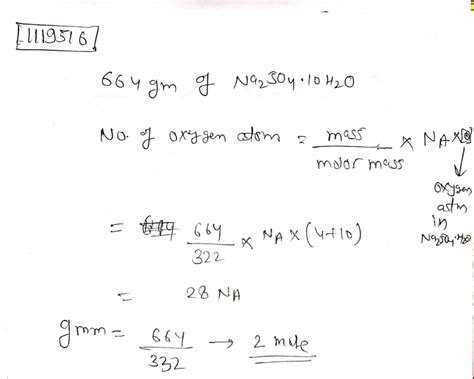 1119516
664 gm of Na2SO4·10H2O
No. of oxygen atom = mass / molar mass × NA ×
oxygen
atm
in
Na2SO4·H2O
= 664 / 322 × NA × (4+10)
= 28 NA
gmm = 664 / 332 → 2 mole